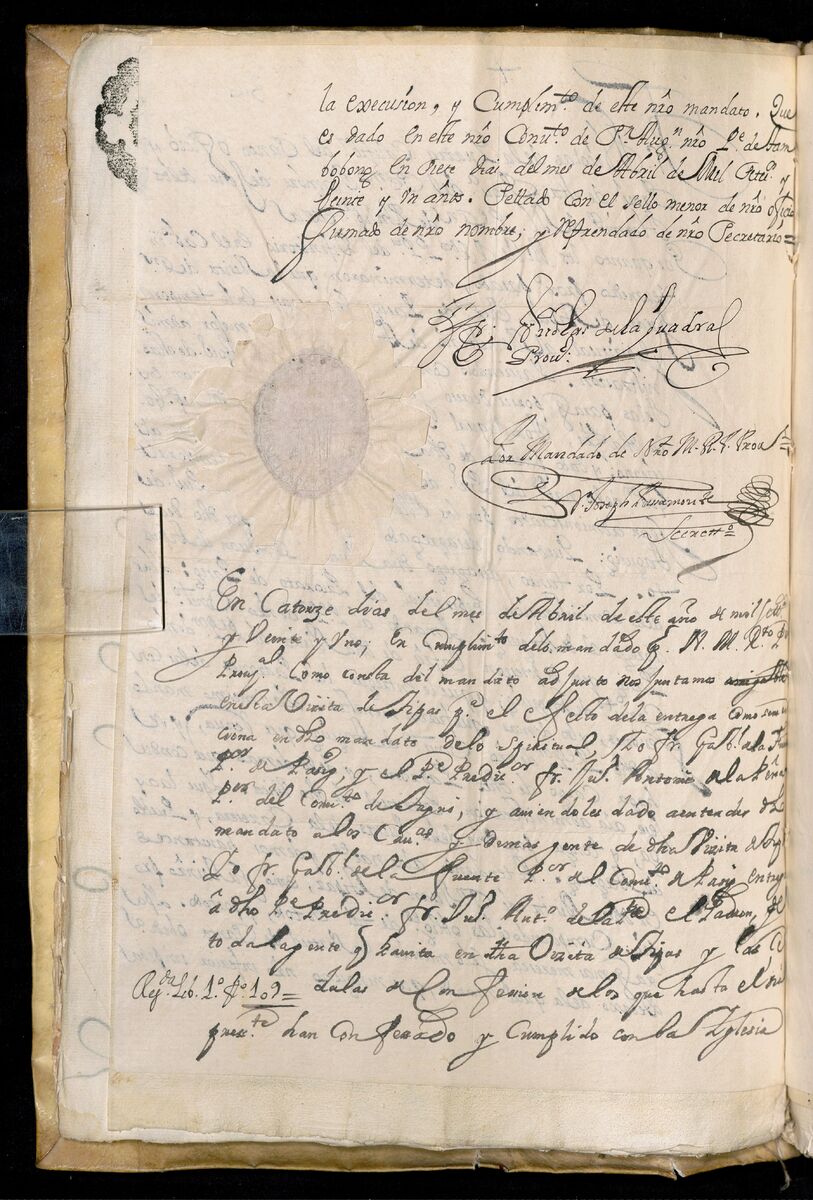 la execusion, y Cumplimto. de este nrõ mandato. Que
es dado en este nrõ Convto. de Sn. Augn. nrõ Pe. de Tam
bobong en siete dias del mes de Abril de Mil Setos. y
Veinte y un años. Sellado con el sello menor de nrõ oficio
firmado de nrõ nombre, y refrendado de nrõ Secretario=
Fr. de la Quadra
Provl.
Por Mandado de Nrõ M. R. P. Provl.=
Fr. Joseph
Secretto.
En Catorze dias del mes de Abril de este año de mil Settos.
y Veinte y Uno; En Cumplimto. de lo mandado N. M. Rdo. Pe.
Provl. como consta del mandato adjunto nos juntamos
en esta Visita de Sipas pa. el efecto de la entrega como se men
ciona en dho mandato de lo spiritual, Yo fr. Gabl. de la Fuente
Por. de Pasig; y el Pe. Predicor. fr. Jun. Antonio de la Peña
Por. del Convto. de , y aviendoles dado a entender dho
mandato a los y demas gente de dha Visita de Sipas
Yo fr. Gabl. de la Fuente Por. del Convto. de Pasig entregue
â dho Pe. Predicor. fr. Jun. Anto. de la Pa. el Padron, de
toda la gente q havita en dha Visita de Sipas y las Ce
Rejda. Lib. 1o. fo. 109=
dulas de Confession de los que hasta el dia
preste. han Confesado y Cumplido con la Yglesia